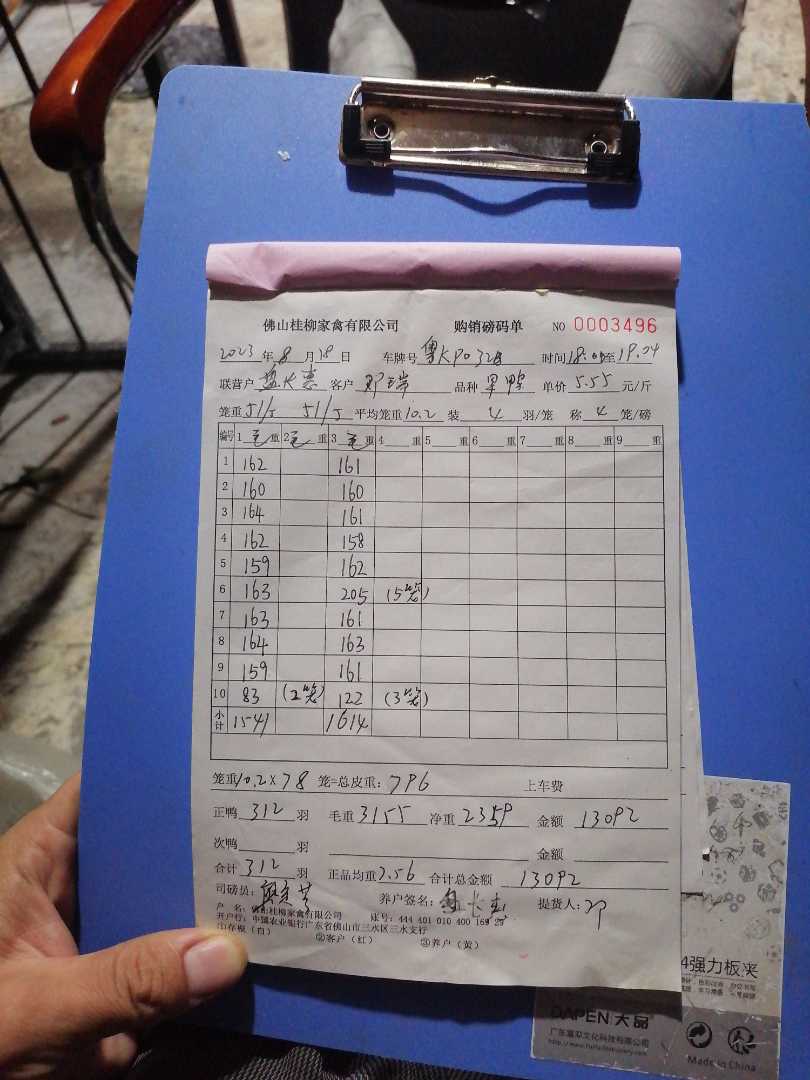 佛山桂柳家禽有限公司 购销磅码单 NO 0003496
2023年8月18日 车牌号 鲁KP0328 时间18:00至19:04
联营户 客户 邓瑞 品种 果鸭 单价 5.55 元/斤
笼重51/5 51/5 平均笼重10.2 装 4 羽/笼 称 4 笼/磅
编号 1 毛 重 2 毛 重 3 毛 重 4 重 5 重 6 重 7 重 8 重 9 重
1 162 161
2 160 160
3 164 161
4 162 158
5 159 162
6 163 205 (5笼)
7 163 161
8 164 163
9 159 161
10 83 (2笼) 122 (3笼)
小计 1541 1614
笼重10.2×78 笼=总皮重:796 上车费
正鸭 312 羽 毛重 3155 净重 2359 金额 13092
次鸭 羽 金额
合计 312 羽 正品均重7.56 合计总金额 13092
司磅员: 养户签名: 提货人:邓
户 名:佛山桂柳家禽有限公司 账号:444 401 010 400 169 29
开户行:中国农业银行广东省佛山市三水区三水支行
①存根(白) ②客户(红) ③养户(黄)
4强力板夹
DAPEN 大品
广东富邦文化科技有限公司
Made in China